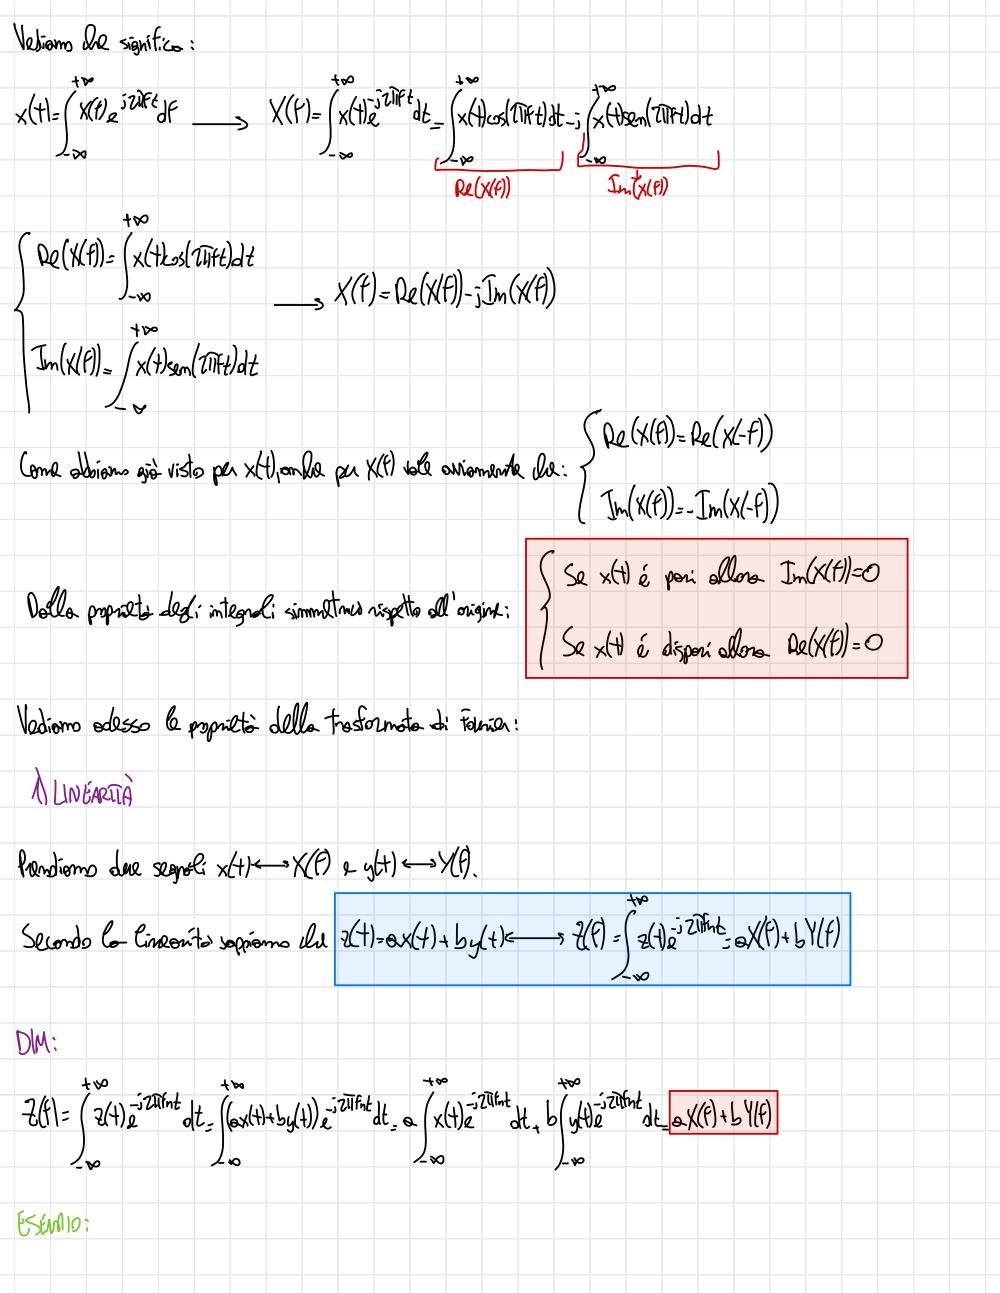 Vediamo che significa:
x(t)=∫_{-∞}^{+∞} X(f)e^{j2πft}df ⟶ X(f)=∫_{-∞}^{+∞} x(t)e^{-j2πft}dt=∫_{-∞}^{+∞} x(t)cos(2πft)dt-j∫_{-∞}^{+∞} x(t)sen(2πft)dt
Re(X(f)) Im(X(f))
Re(X(f))=∫_{-∞}^{+∞} x(t)cos(2πft)dt
⟶ X(f)=Re(X(f))-jIm(X(f))
Im(X(f))=∫_{-∞}^{+∞} x(t)sen(2πft)dt
Re(X(f))=Re(X(-f))
Come abbiamo già visto per x(t), anche per X(f) vale ovviamente che:
Im(X(f))=-Im(X(-f))
Se x(t) é pari allora Im(X(f))=0
Dalla proprietà degli integrali simmetrici rispetto all'origine:
Se x(t) é dispari allora Re(X(f))=0
Vediamo adesso le proprietà della trasformata di Fourier:
1) LINEARITÀ
Prendiamo due segnali x(t)⟷X(f) e y(t)⟷Y(f).
Secondo la linearità sappiamo che z(t)=ax(t)+by(t)⟷Z(f)=∫_{-∞}^{+∞} z(t)e^{-j2πfnt}=aX(f)+bY(f)
DIM:
Z(f)=∫_{-∞}^{+∞} z(t)e^{-j2πfnt}dt=∫_{-∞}^{+∞}(ax(t)+by(t))e^{-j2πfnt}dt=a∫_{-∞}^{+∞} x(t)e^{-j2πfnt}dt+b∫_{-∞}^{+∞} y(t)e^{-j2πfnt}dt=aX(f)+bY(f)
ESEMPIO: